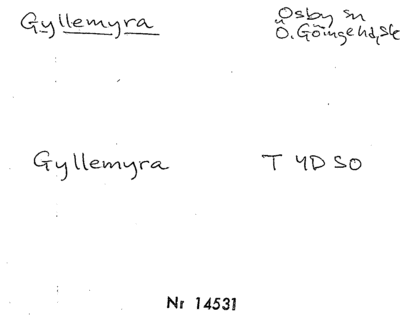 Gyllemyra
Osby sn
Ö. Göinge hd, Sk
Gyllemyra
T 4D SO
Nr 14531